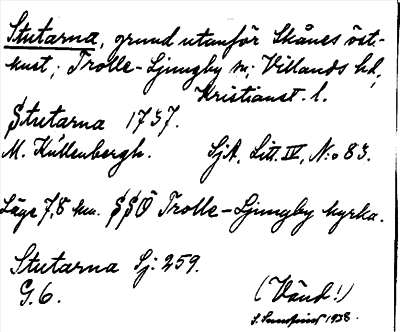 Stutarna, grund utanför Skånes öst-
kust; Trolle-Ljungby sn; Villands hd,
Kristianst. l.
Stutarna 1737.
M. Küllenbergh. SjA, Litt. IV, N:o 83.
Läge 7,8 km. SSÖ Trolle-Ljungby kyrka.
Stutarna Sj: 259.
G. 6. (Vänd!)
1938.